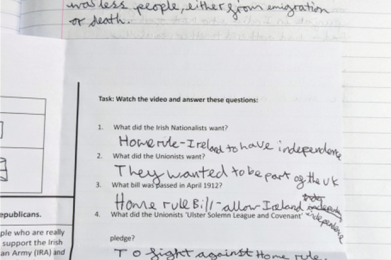 was less people, either from emigration
or death.
Task: Watch the video and answer these questions:
1. What did the Irish Nationalists want?
Home rule - Ireland to have independence
2. What did the Unionists want?
They wanted to be part of the UK
3. What bill was passed in April 1912?
Home rule Bill - allow Ireland
independence
4. What did the Unionists 'Ulster Solemn League and Covenant'
pledge?
To fight against Home rule
epublicans.
ple who are really
support the Irish
an Army (IRA) and